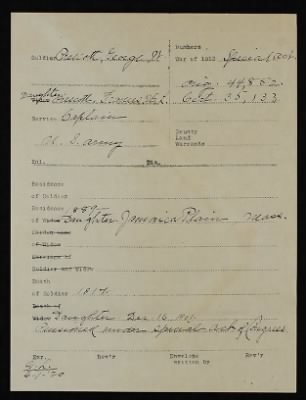 Numbers
Soldier George W. War of 1812 Special Act.
Orig. 44,882
Daughter
Widow Ctf. 35,133
Service Captain
U. S. Army
Bounty
Land
Warrants
Enl. Dis.
Residence
of Soldier
Residence 1889
of Widow Daughter Jamaica Plain Mass.
Maiden name
of Widow
Marriage of
Soldier and Widow
Death
of Soldier 1817.
Death of
Widow Daughter Dec 16
Pensioned under Special Act of Congress
Rev'r Envelope Rev'r
written by